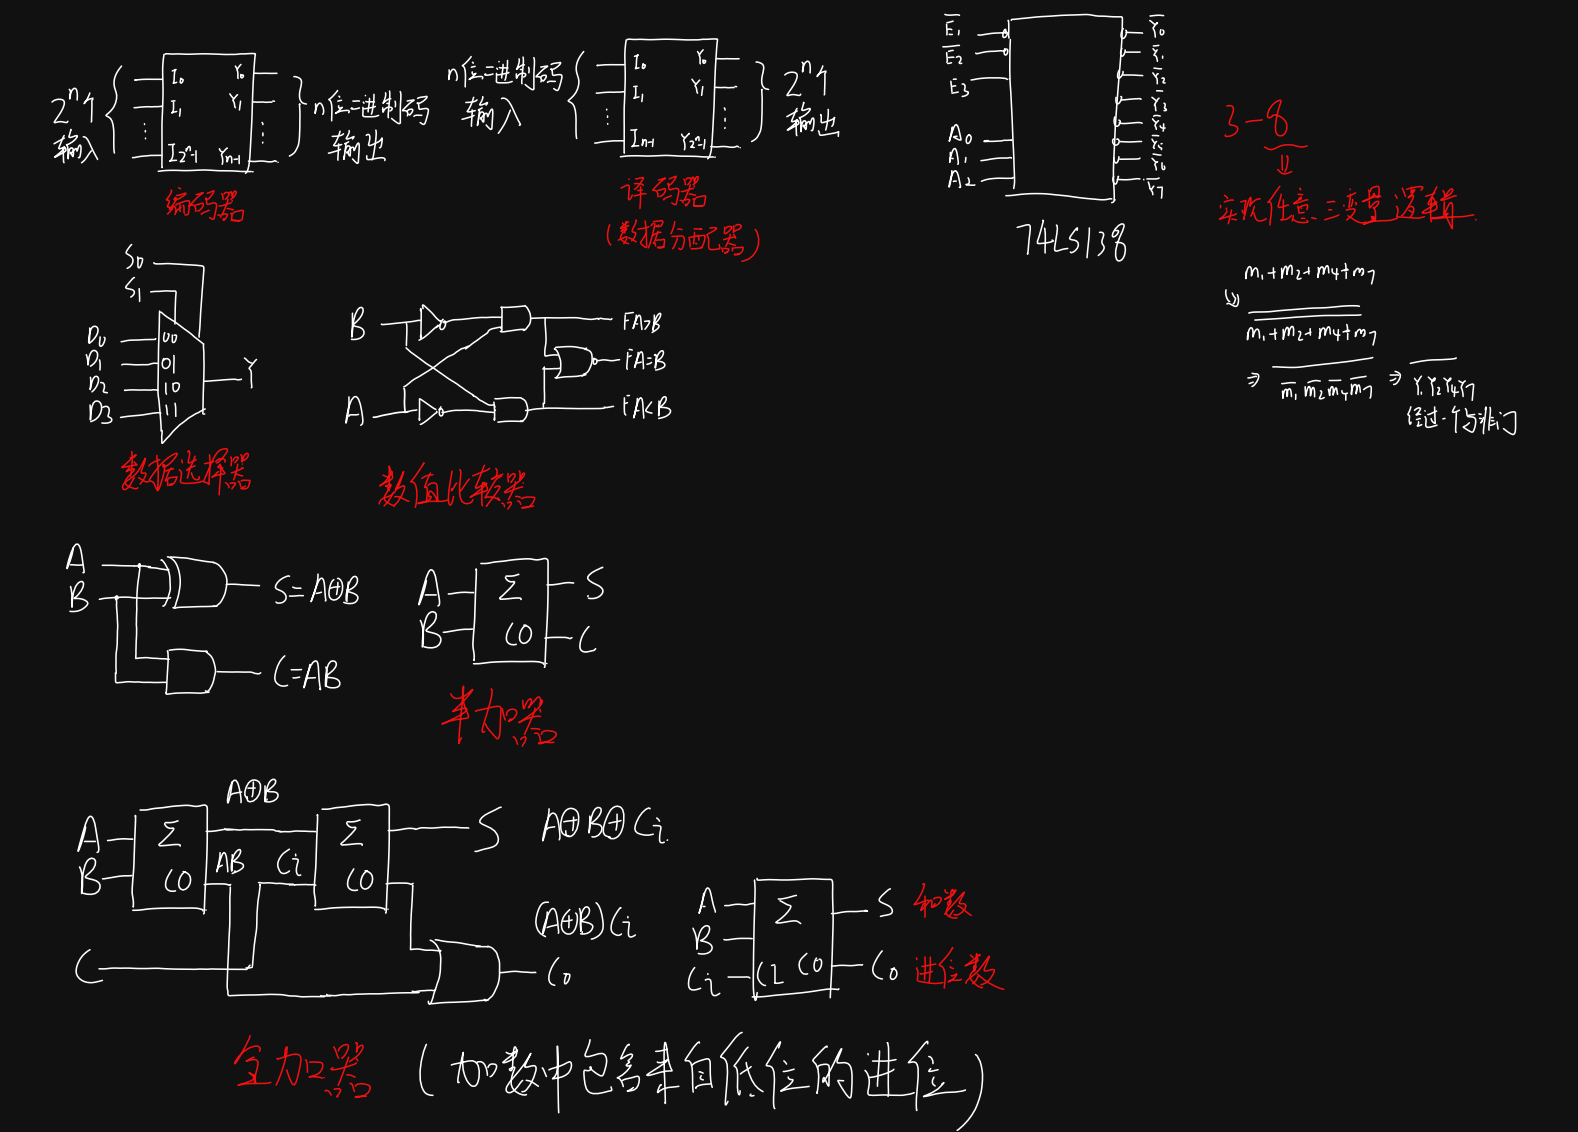 2ⁿ个
输入
I₀
I₁
⋮
I2ⁿ-1
Y₀
Y₁
⋮
Yn-1
n位二进制码
输出
编码器
n位二进制码
输入
I₀
I₁
⋮
In-1
Y₀
Y₁
⋮
Y2ⁿ-1
2ⁿ个
输出
译码器
(数据分配器)
E̅₁
E̅₂
E₃
A₀
A₁
A₂
Y̅₀
Y̅₁
Y̅₂
Y̅₃
Y̅₄
Y̅₅
Y̅₆
Y̅₇
74LS138
3-8
⇓
实现任意三变量逻辑
m₁+m₂+m₄+m₇
⇒
m₁+m₂+m₄+m₇
⇒ m̅₁ m̅₂ m̅₄ m̅₇ ⇒ Y₁Y₂Y₄Y₇
经过一个与非门
S₀
S₁
D₀
D₁
D₂
D₃
00
01
10
11
Y
数据选择器
B
A
FA>B
FA=B
FA<B
数值比较器
A
B
S=A⊕B
C=AB
A
B
Σ
CO
S
C
半加器
A⊕B
A
B
Σ
CO
AB
Ci
Σ
CO
S
A⊕B⊕Ci
C
(A⊕B)Ci
Co
A
B
Ci
Σ
CI
CO
S 和数
Co 进位数
全加器 (加数中包含来自低位的进位)